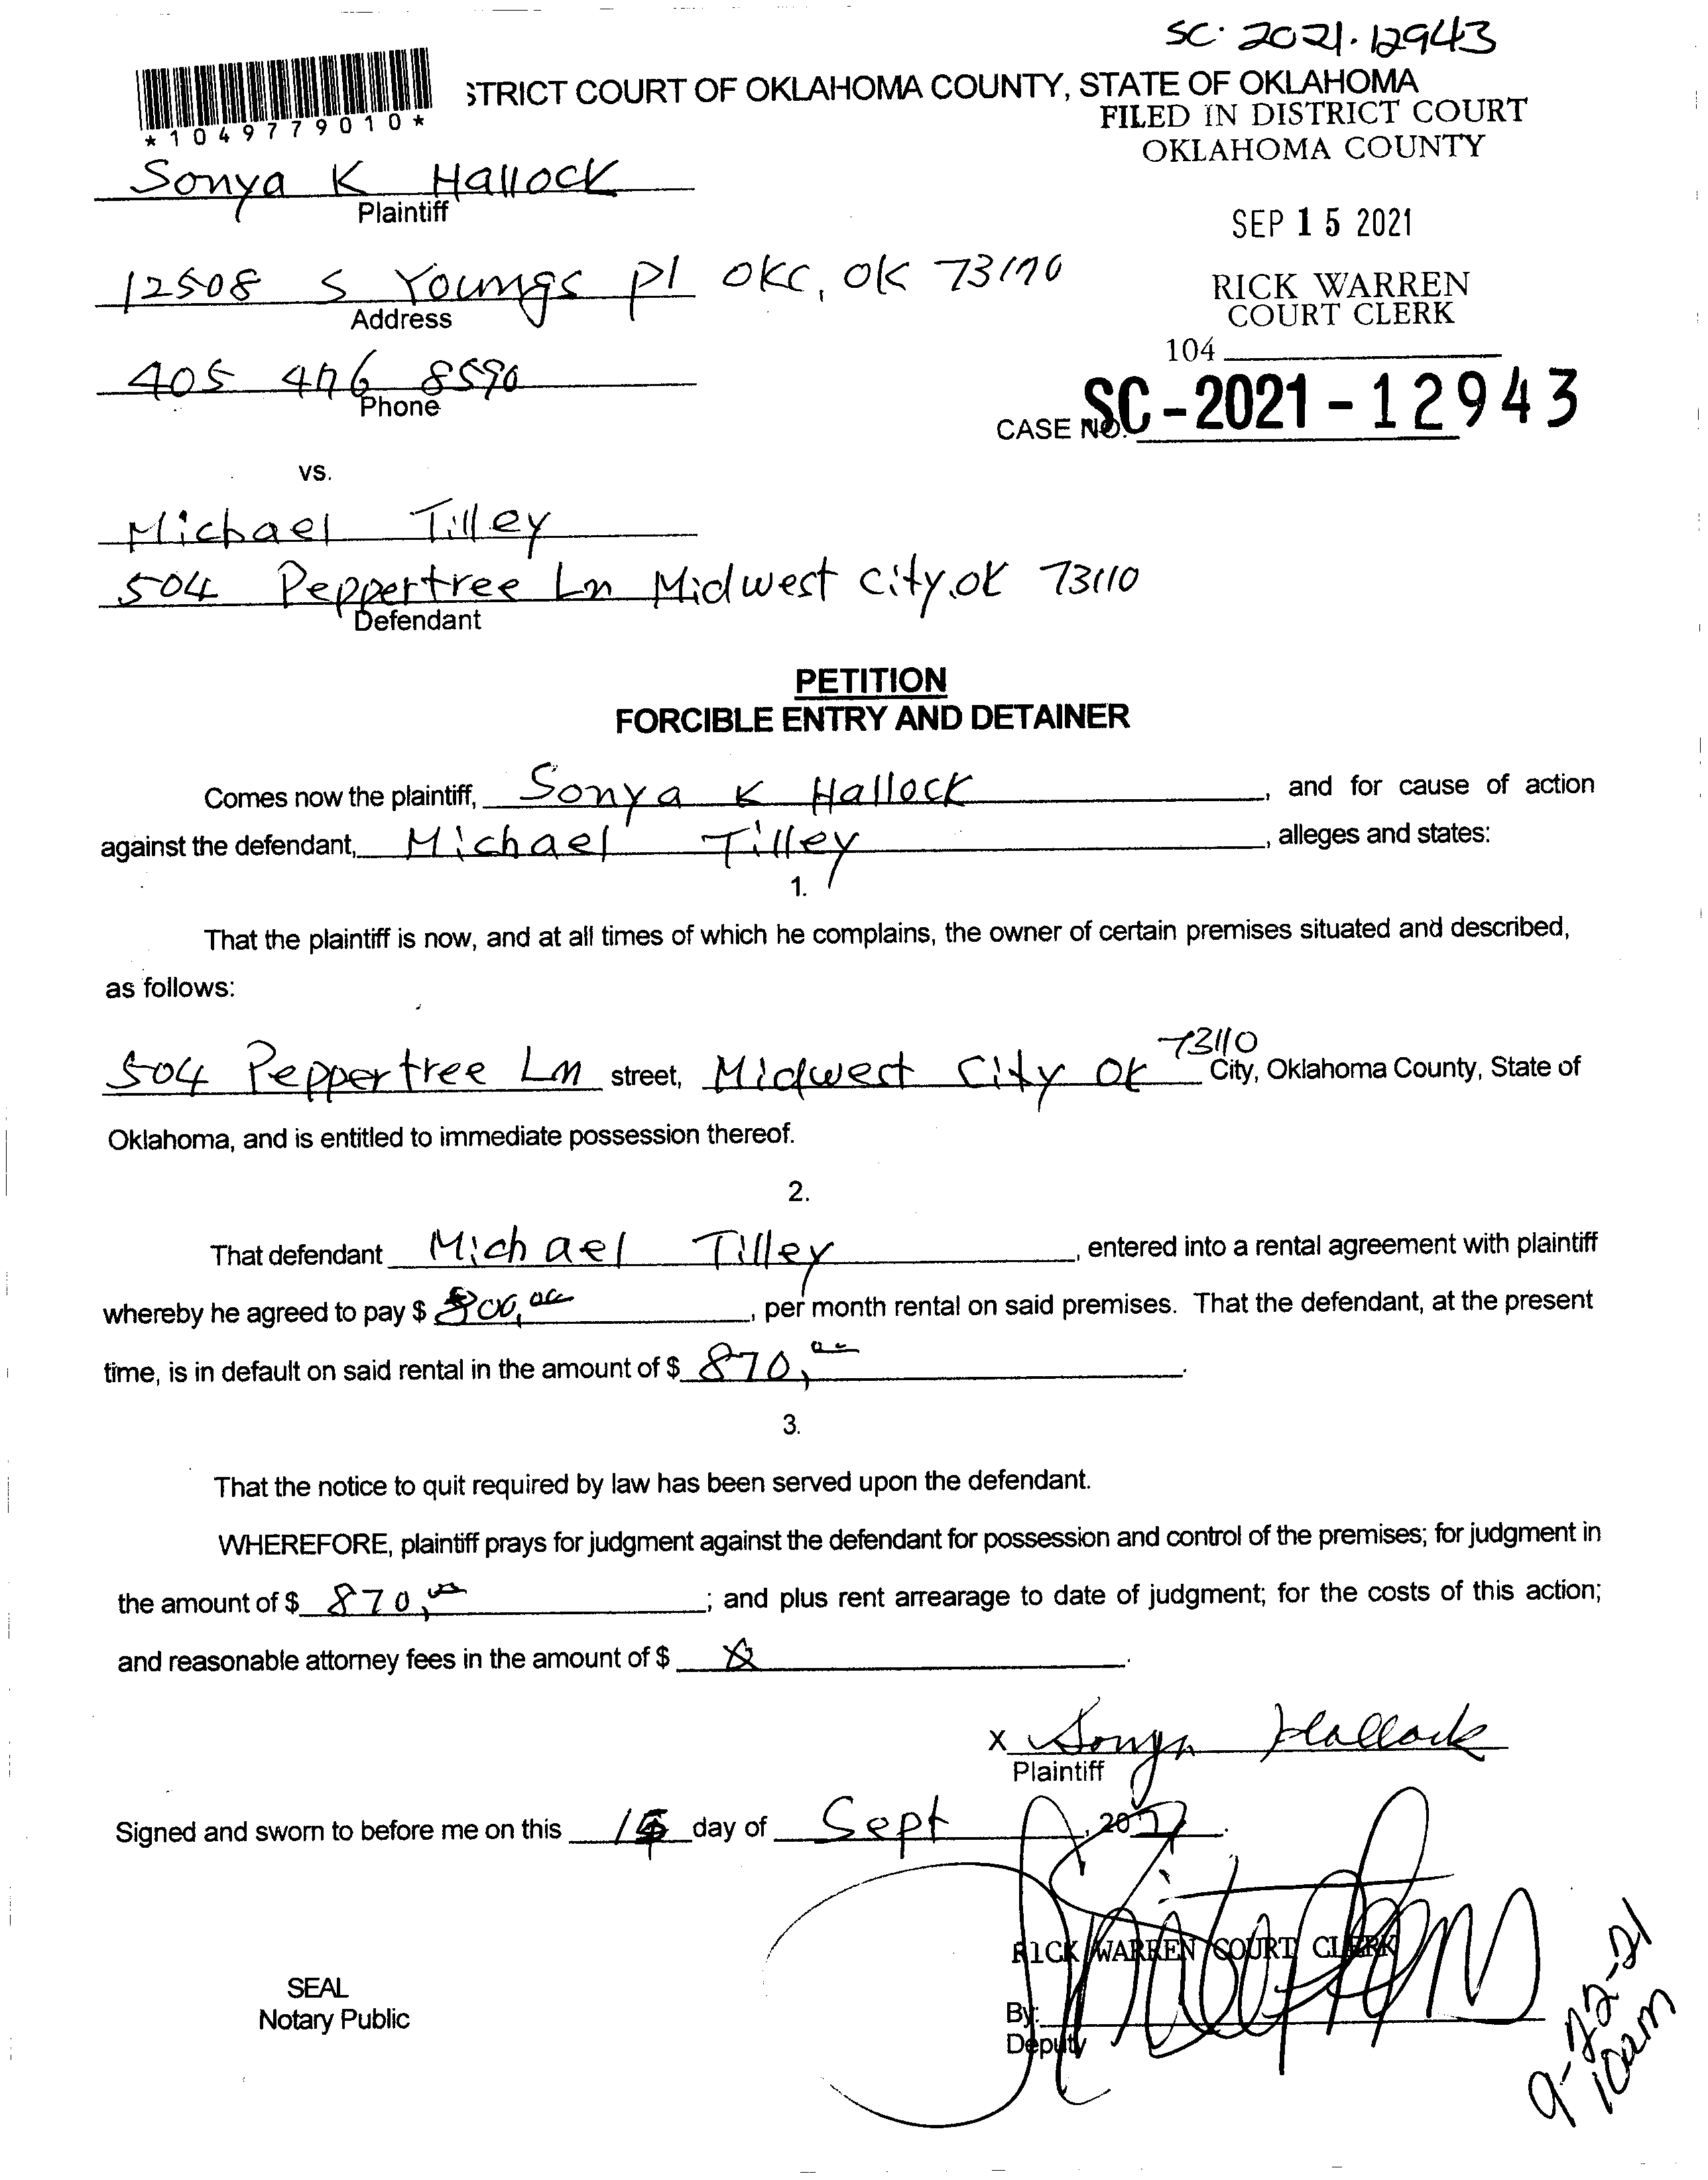 SC. 2021. 12943
STRICT COURT OF OKLAHOMA COUNTY, STATE OF OKLAHOMA
FILED IN DISTRICT COURT
OKLAHOMA COUNTY
*1049779010*
Sonya K Hallock
Plaintiff
SEP 15 2021
12508 S Youngs Pl OKC, OK 73170
Address
RICK WARREN
COURT CLERK
104
405 476 8590
Phone
CASE NO. SC-2021-12943
vs.
Michael Tilley
504 Peppertree Ln Midwest City, OK 73110
Defendant
PETITION
FORCIBLE ENTRY AND DETAINER
Comes now the plaintiff, Sonya K Hallock, and for cause of action
against the defendant, Michael Tilley, alleges and states:
1.
That the plaintiff is now, and at all times of which he complains, the owner of certain premises situated and described,
as follows:
504 Peppertree Ln street, Midwest City OK 73110 City, Oklahoma County, State of
Oklahoma, and is entitled to immediate possession thereof.
2.
That defendant Michael Tilley, entered into a rental agreement with plaintiff
whereby he agreed to pay $ 800,00, per month rental on said premises. That the defendant, at the present
time, is in default on said rental in the amount of $ 870,00.
3.
That the notice to quit required by law has been served upon the defendant.
WHEREFORE, plaintiff prays for judgment against the defendant for possession and control of the premises; for judgment in
the amount of $ 870,00; and plus rent arrearage to date of judgment; for the costs of this action;
and reasonable attorney fees in the amount of $ .
X Sonya Hallock
Plaintiff
Signed and sworn to before me on this 15 day of Sept, 2021.
RICK WARREN COURT CLERK
SEAL
Notary Public
By:
Deputy
9-22-21
10am